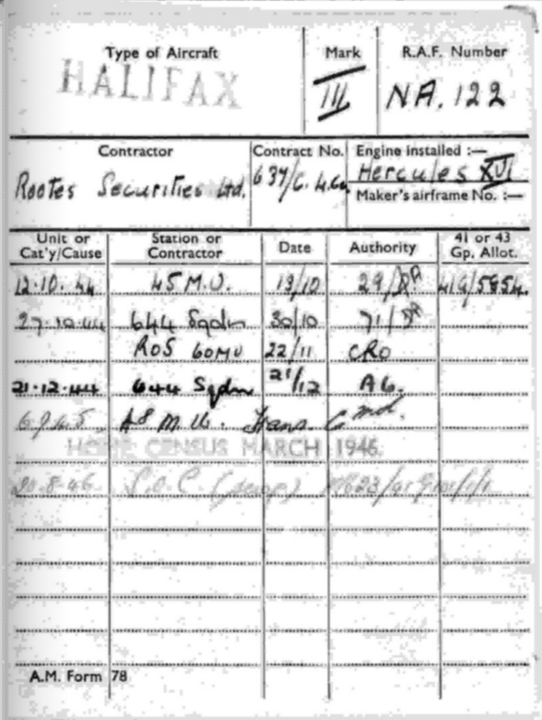 Type of Aircraft Mark R.A.F. Number
HALIFAX III NA.122
Contractor Contract No. Engine installed :—
Rootes Securities Ltd. 637/C. Hercules XVI
Maker's airframe No. :—
Unit or Cat'y/Cause Station or Contractor Date Authority 41 or 43 Gp. Allot.
12.10.44 45 M.U. 13/10 29/ 41G/5854.
27.10.44 644 Sqdn 30/10 71/
ROS 60MU 22/11 CRO
21.12.44 644 Sqdn 21/12 AG.
6.9.45 48 M.U. Trans. Cmd.
HOME CENSUS MARCH 1946.
20.8.46 S.O.C. (scrap)
A.M. Form 78